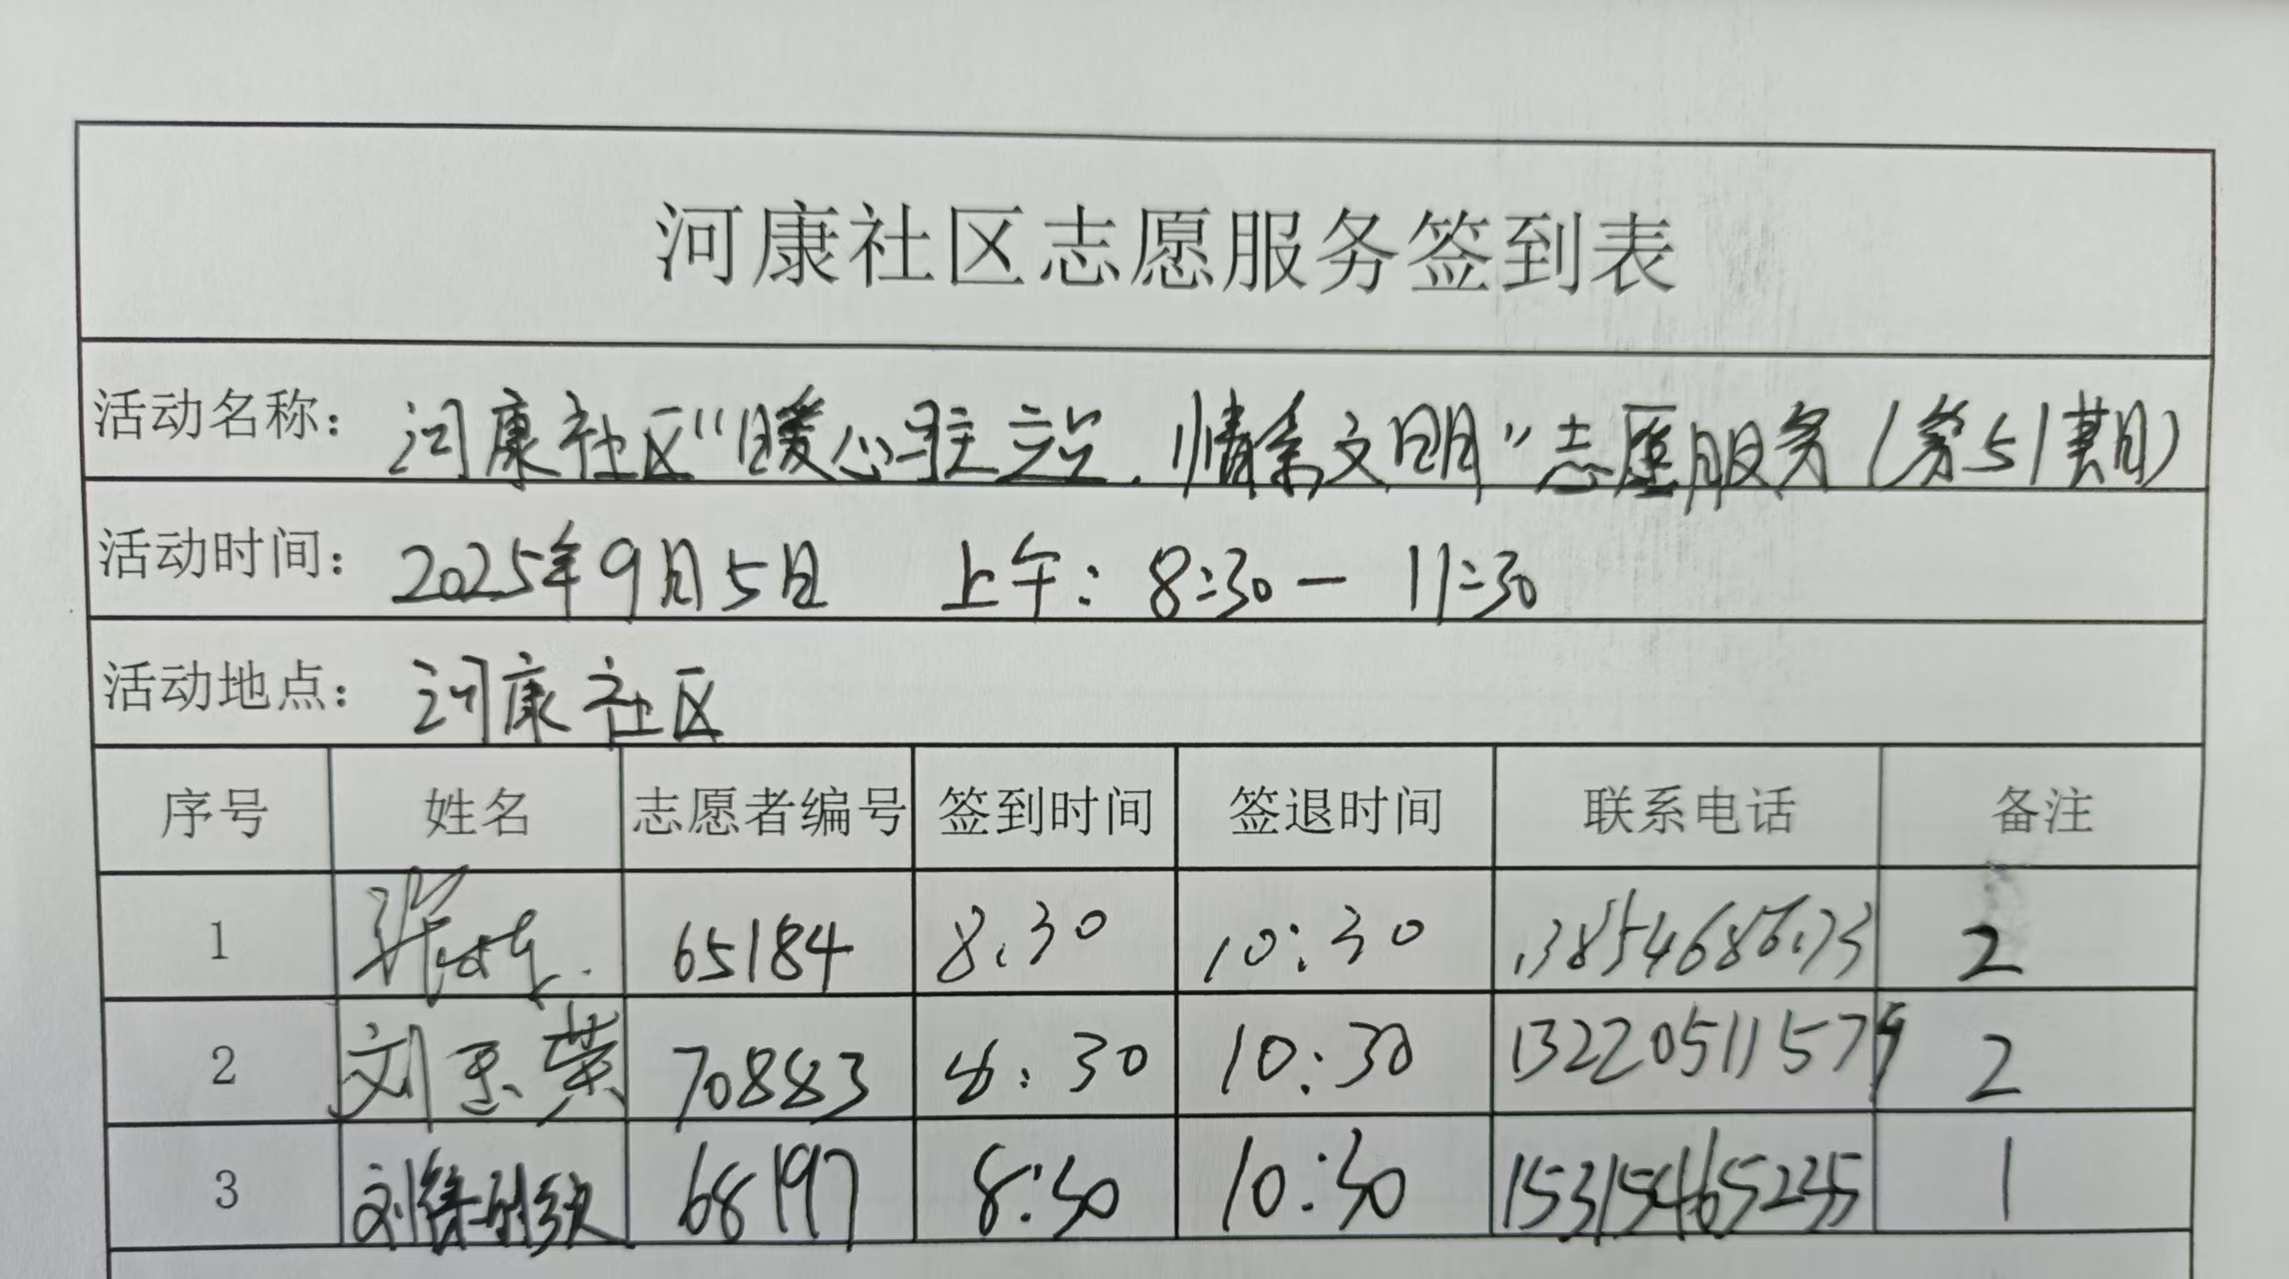 河康社区志愿服务签到表
活动名称: 河康社区"暖心驻立岗,情系文明"志愿服务(第51期)
活动时间: 2025年9月5日 上午: 8:30—11:30
活动地点: 河康社区
序号 姓名 志愿者编号 签到时间 签退时间 联系电话 备注
1 65184 8:30 10:30 2
2 刘玉荣 70883 8:30 10:30 13220511579 2
3 刘 68197 8:30 10:30 15315465235 1